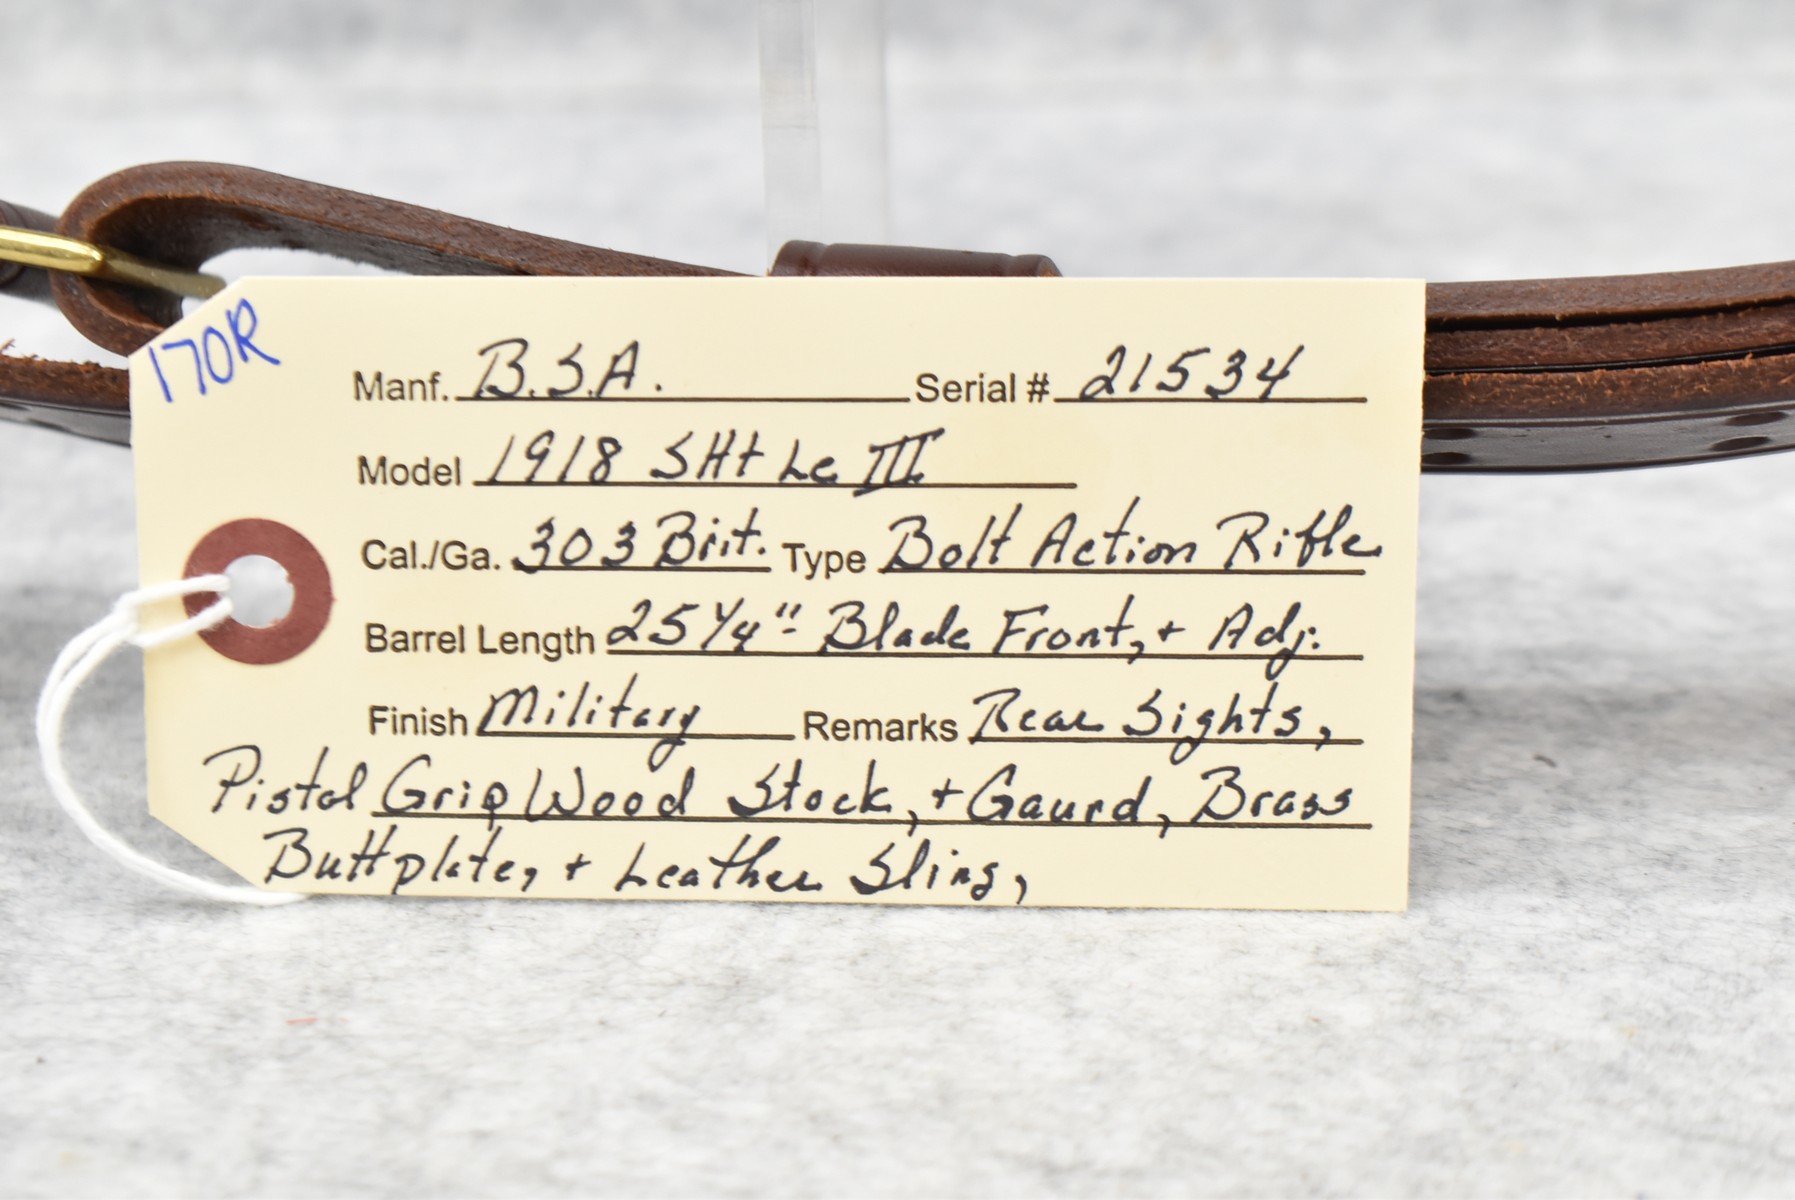 170R
Manf. B.S.A. Serial # 21534
Model 1918 SHt Le III
Cal./Ga. 303 Brit. Type Bolt Action Rifle
Barrel Length 25 1/4" - Blade Front, + Adj.
Finish Military Remarks Rear Sights,
Pistol Grip Wood Stock, + Gaurd, Brass
Buttplate, + Leather Sling,